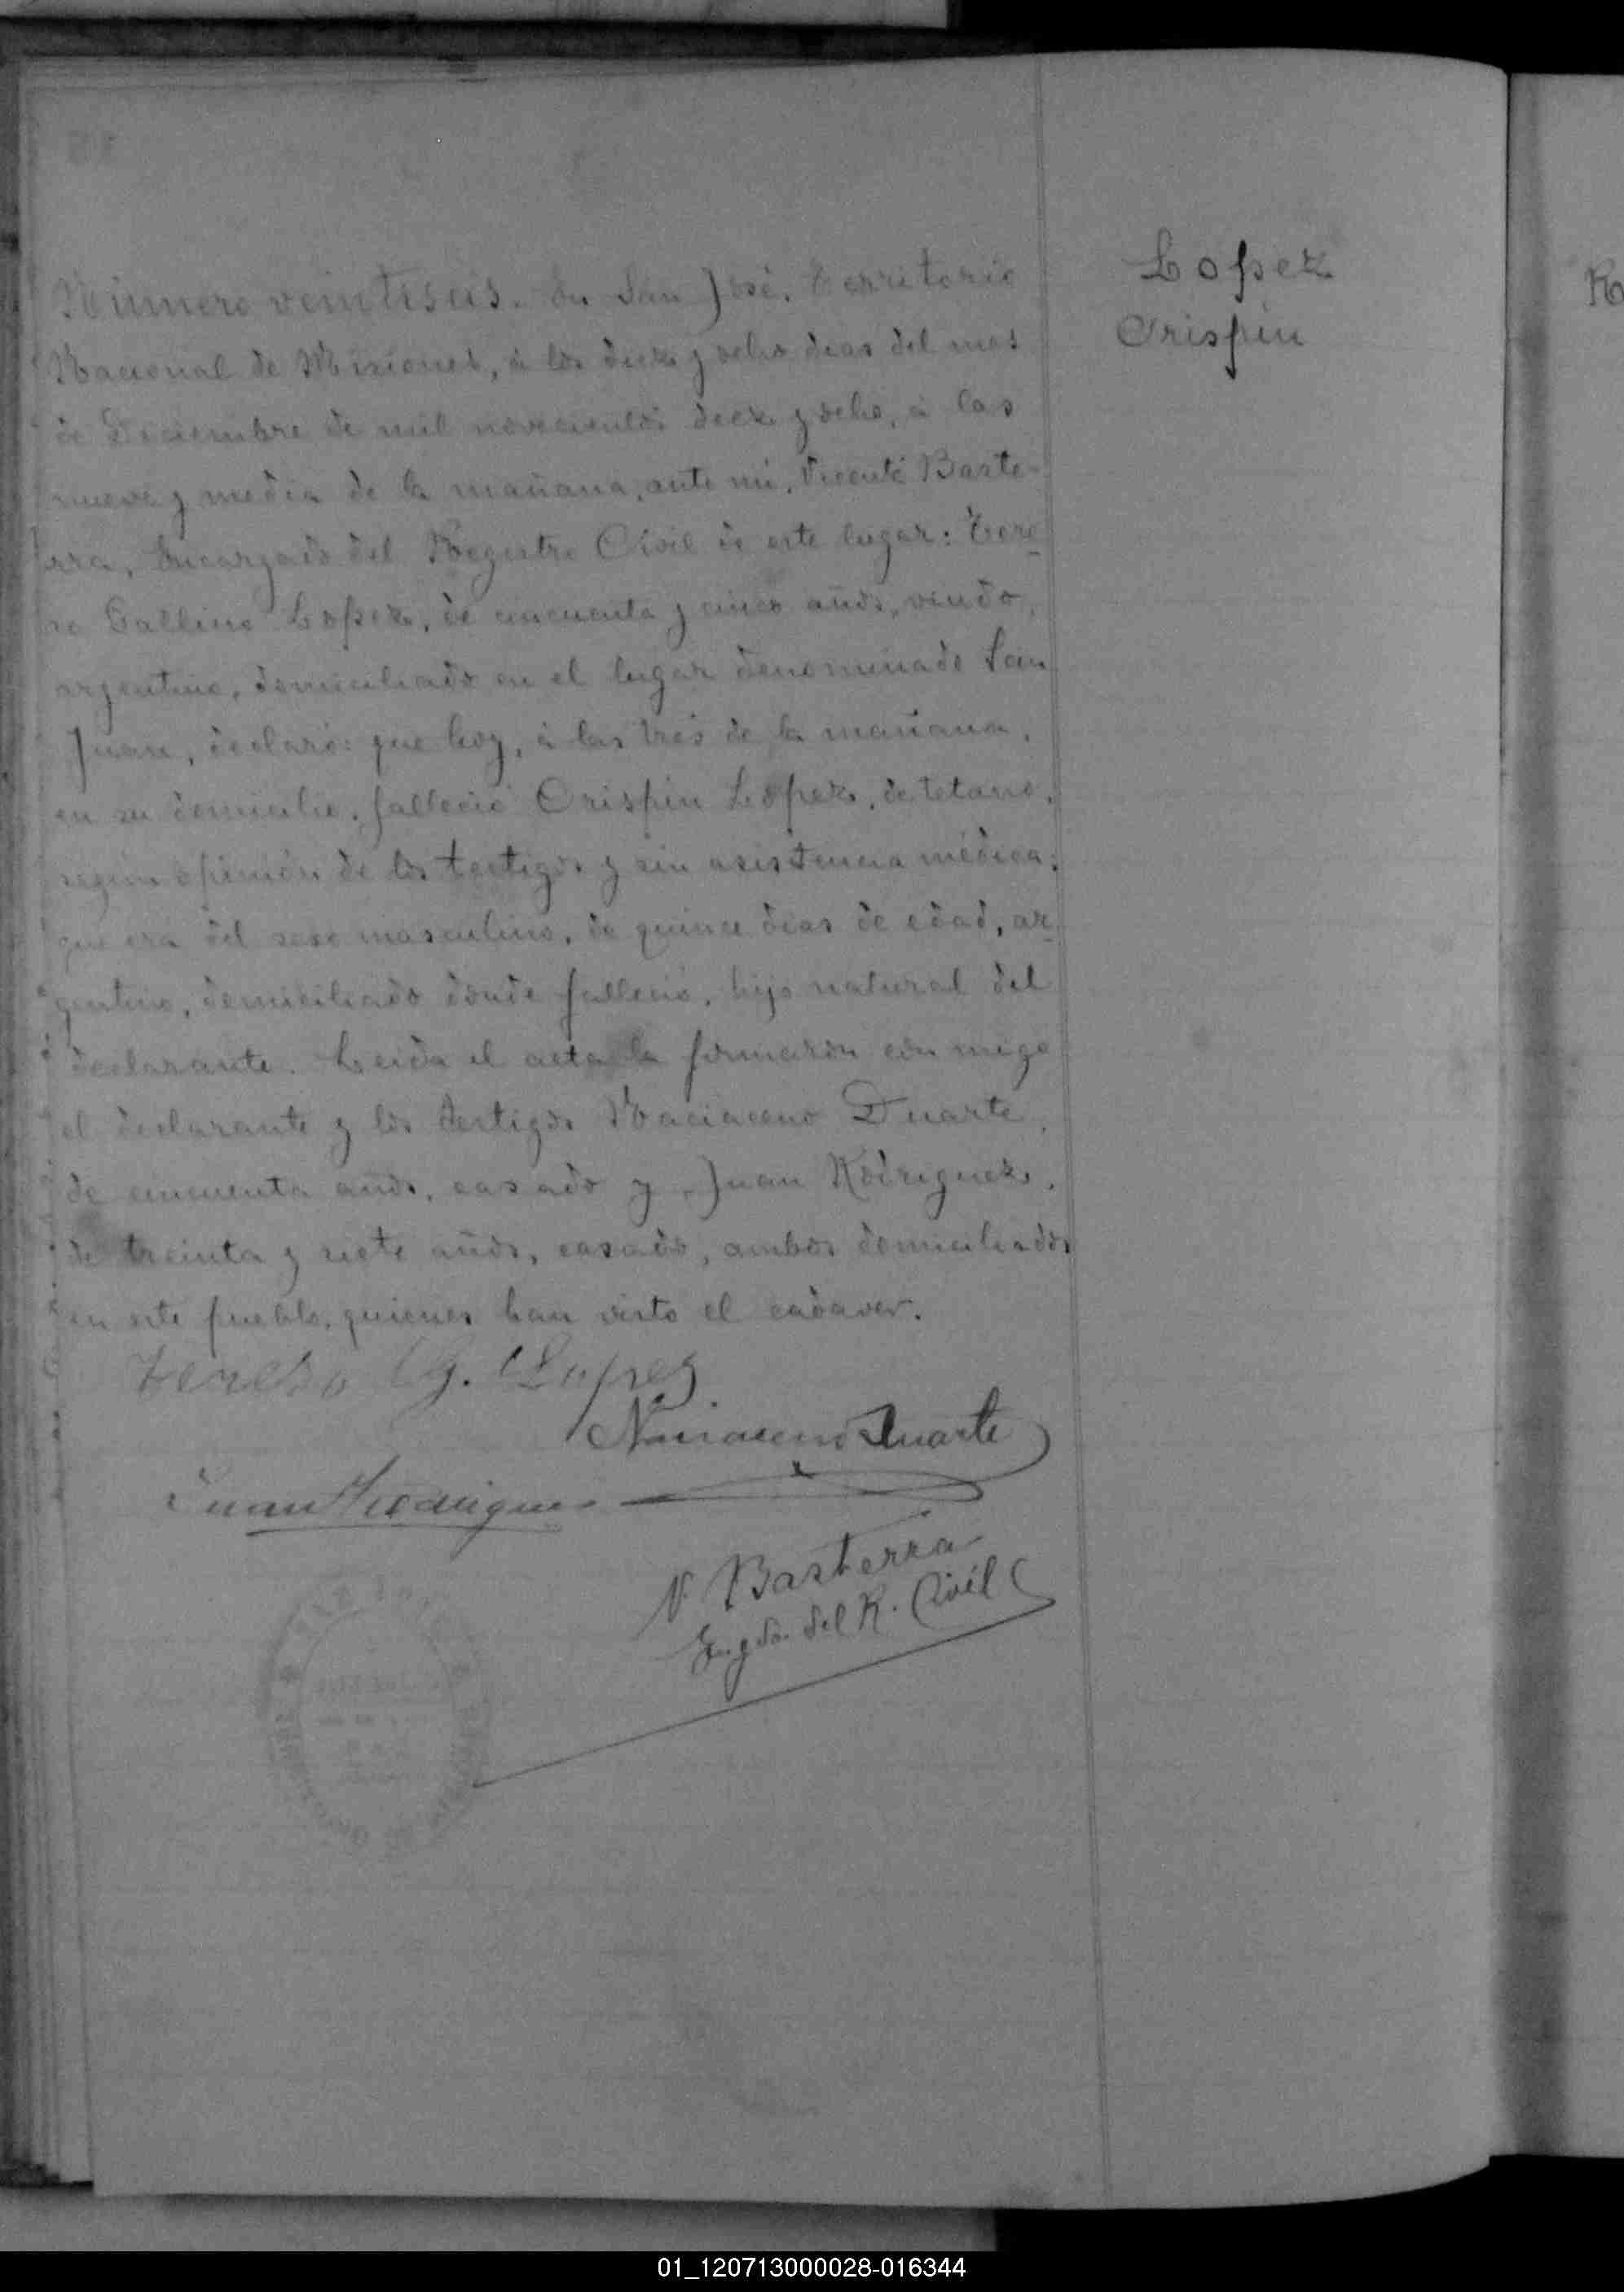 Lopez
Crispin
Número veintiseis. En San José, Territorio
Nacional de Misiones, á los diez y ocho dias del mes
de Diciembre de mil novecientos diez y ocho, á las
nueve y media de la mañana, ante mi, Vicente Baste-
rra, Encargado del Registro Civil de este lugar: Tere
so Gallino Lopez, de cincuenta y cinco años, viudo,
argentino, domiciliado en el lugar denominado San
Juan, declaró: que hoy, á las tres de la mañana,
en su domicilio, falleció Crispin Lopez, de tetano,
según opinión de los testigos y sin asistencia médica;
que era del sexo masculino, de quince dias de edad, ar-
gentino, domiciliado donde falleció, hijo natural del
declarante. Leida el acta la firmaron con migo
el declarante y los testigos Naciaceno Duarte,
de cincuenta años, casado y Juan Rodriguez,
de treinta y siete años, casado, ambos domiciliados
en este pueblo, quienes han visto el cadaver.
Tereso G. Lopez
Naciaceno Duarte
Juan Rodriguez
V. Basterra
Engdo. del R. Civil
01_120713000028-016344